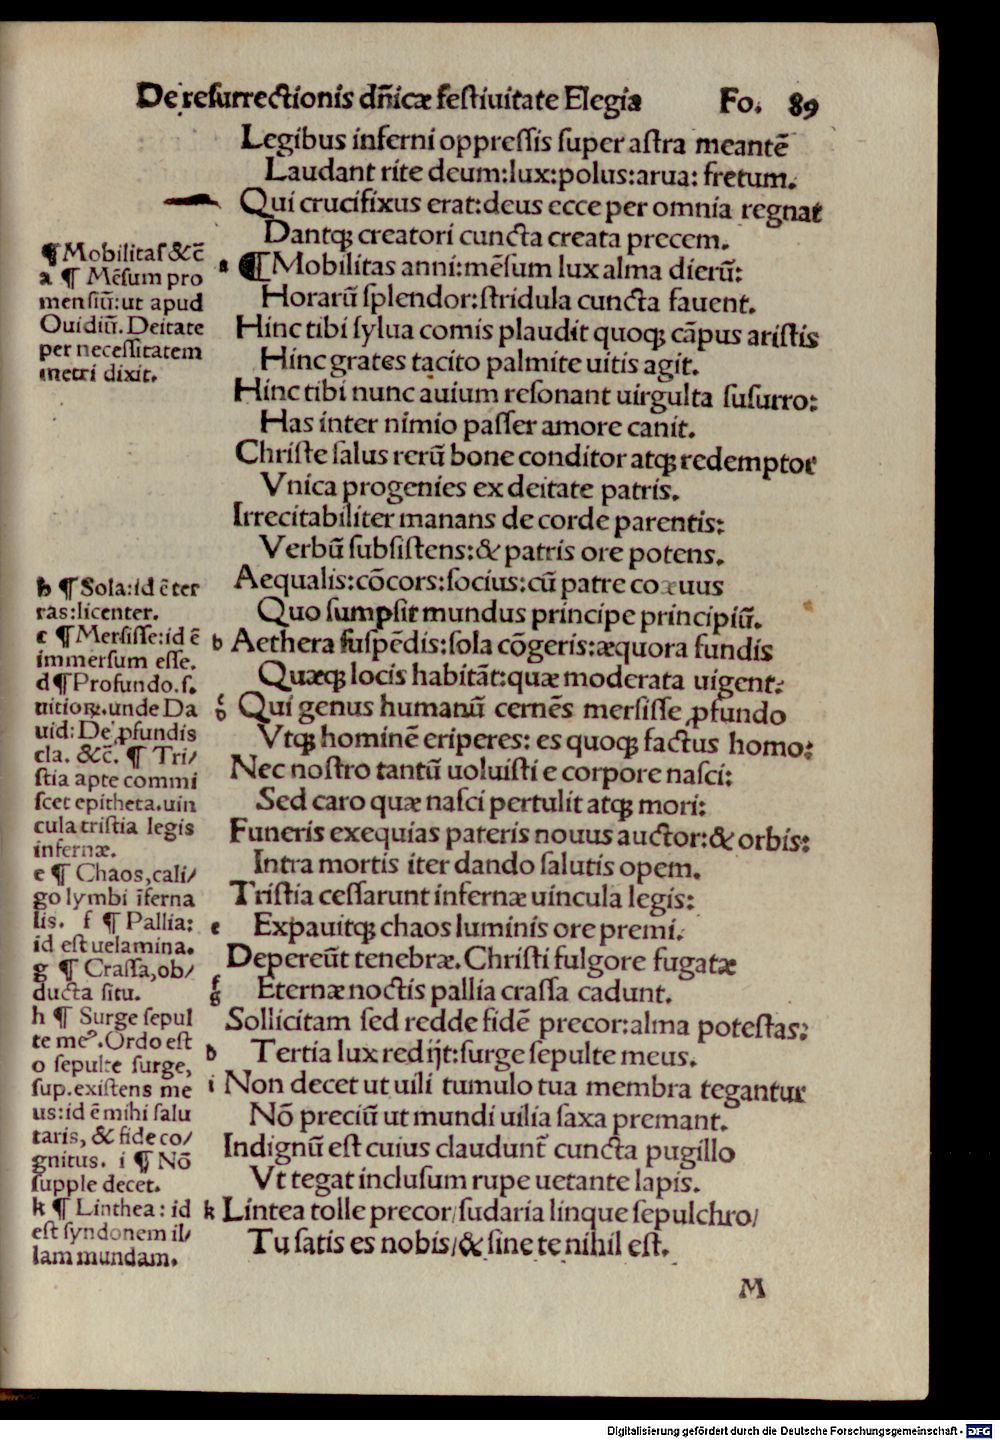 De resurrectionis dñicæ festiuitate Elegia Fo. 89
Legibus inferni oppressis super astra meantẽ
Laudant rite deum:lux:polus:arua: fretum.
Qui crucifixus erat:deus ecce per omnia regnat
Dantqꝫ creatori cuncta creata precem.
a ¶Mobilitas anni:mẽsum lux alma dierũ:
Horarũ splendor:stridula cuncta fauent.
Hinc tibi sylua comis plaudit quoqꝫ cãpus aristis
Hinc grates tacito palmite uitis agit.
Hinc tibi nunc auium resonant uirgulta susurro:
Has inter nimio passer amore canit.
Christe salus rerũ bone conditor atqꝫ redemptor
Vnica progenies ex deitate patris.
Irrecitabiliter manans de corde parentis:
Verbũ subsistens:& patris ore potens.
Aequalis:cõcors:socius:cũ patre coæuus
Quo sumpsit mundus principe principiũ.
b Aethera suspẽdis:sola cõgeris:æquora fundis
Quæqꝫ locis habitãt:quæ moderata uigent:
c
d Qui genus humanũ cernẽs mersisse ꝓfundo
Vtqꝫ hominẽ eriperes: es quoqꝫ factus homo:
Nec nostro tantũ uoluisti e corpore nasci:
Sed caro quæ nasci pertulit atqꝫ mori:
Funeris exequias pateris nouus auctor:& orbis:
Intra mortis iter dando salutis opem.
Tristia cessarunt infernæ uincula legis:
e Expauitqꝫ chaos luminis ore premi.
Depereũt tenebræ. Christi fulgore fugatæ
f
g Eternæ noctis pallia crassa cadunt.
Sollicitam sed redde fidẽ precor:alma potestas:
b Tertia lux redijt:surge sepulte meus.
i Non decet ut uili tumulo tua membra tegantur
Nõ preciũ ut mundi uilia saxa premant.
Indignũ est cuius clauduntᷣ cuncta pugillo
Vt tegat inclusum rupe uetante lapis.
k Lintea tolle precor/sudaria linque sepulchro/
Tu satis es nobis/& sine te nihil est.
M
¶Mobilitas &c̃
a ¶ Mẽsum pro
mensiũ:ut apud
Ouidiũ. Deitate
per necessitatem
metri dixit.
b ¶Sola:id ẽ ter
ras:licenter.
c ¶Mersisse:id ẽ
immersum esse.
d¶Profundo.s.
uitioꝝ.unde Da
uid: De ꝓfundis
cla. &c̃. ¶ Tri/
stia apte commi
scet epitheta.uin
cula tristia legis
infernæ.
e ¶ Chaos,cali/
go lymbi ĩferna
lis. f ¶ Pallia:
id est uelamina.
g ¶ Crassa,ob/
ducta situ.
h ¶ Surge sepul
te meꝰ.Ordo est
o sepulte surge,
sup.existens me
us:id ẽ mihi salu
taris, & fide co/
gnitus. i ¶ Nõ
supple decet.
k ¶ Linthea: id
est syndonem il/
lam mundam.
Digitalisierung gefördert durch die Deutsche Forschungsgemeinschaft - DFG